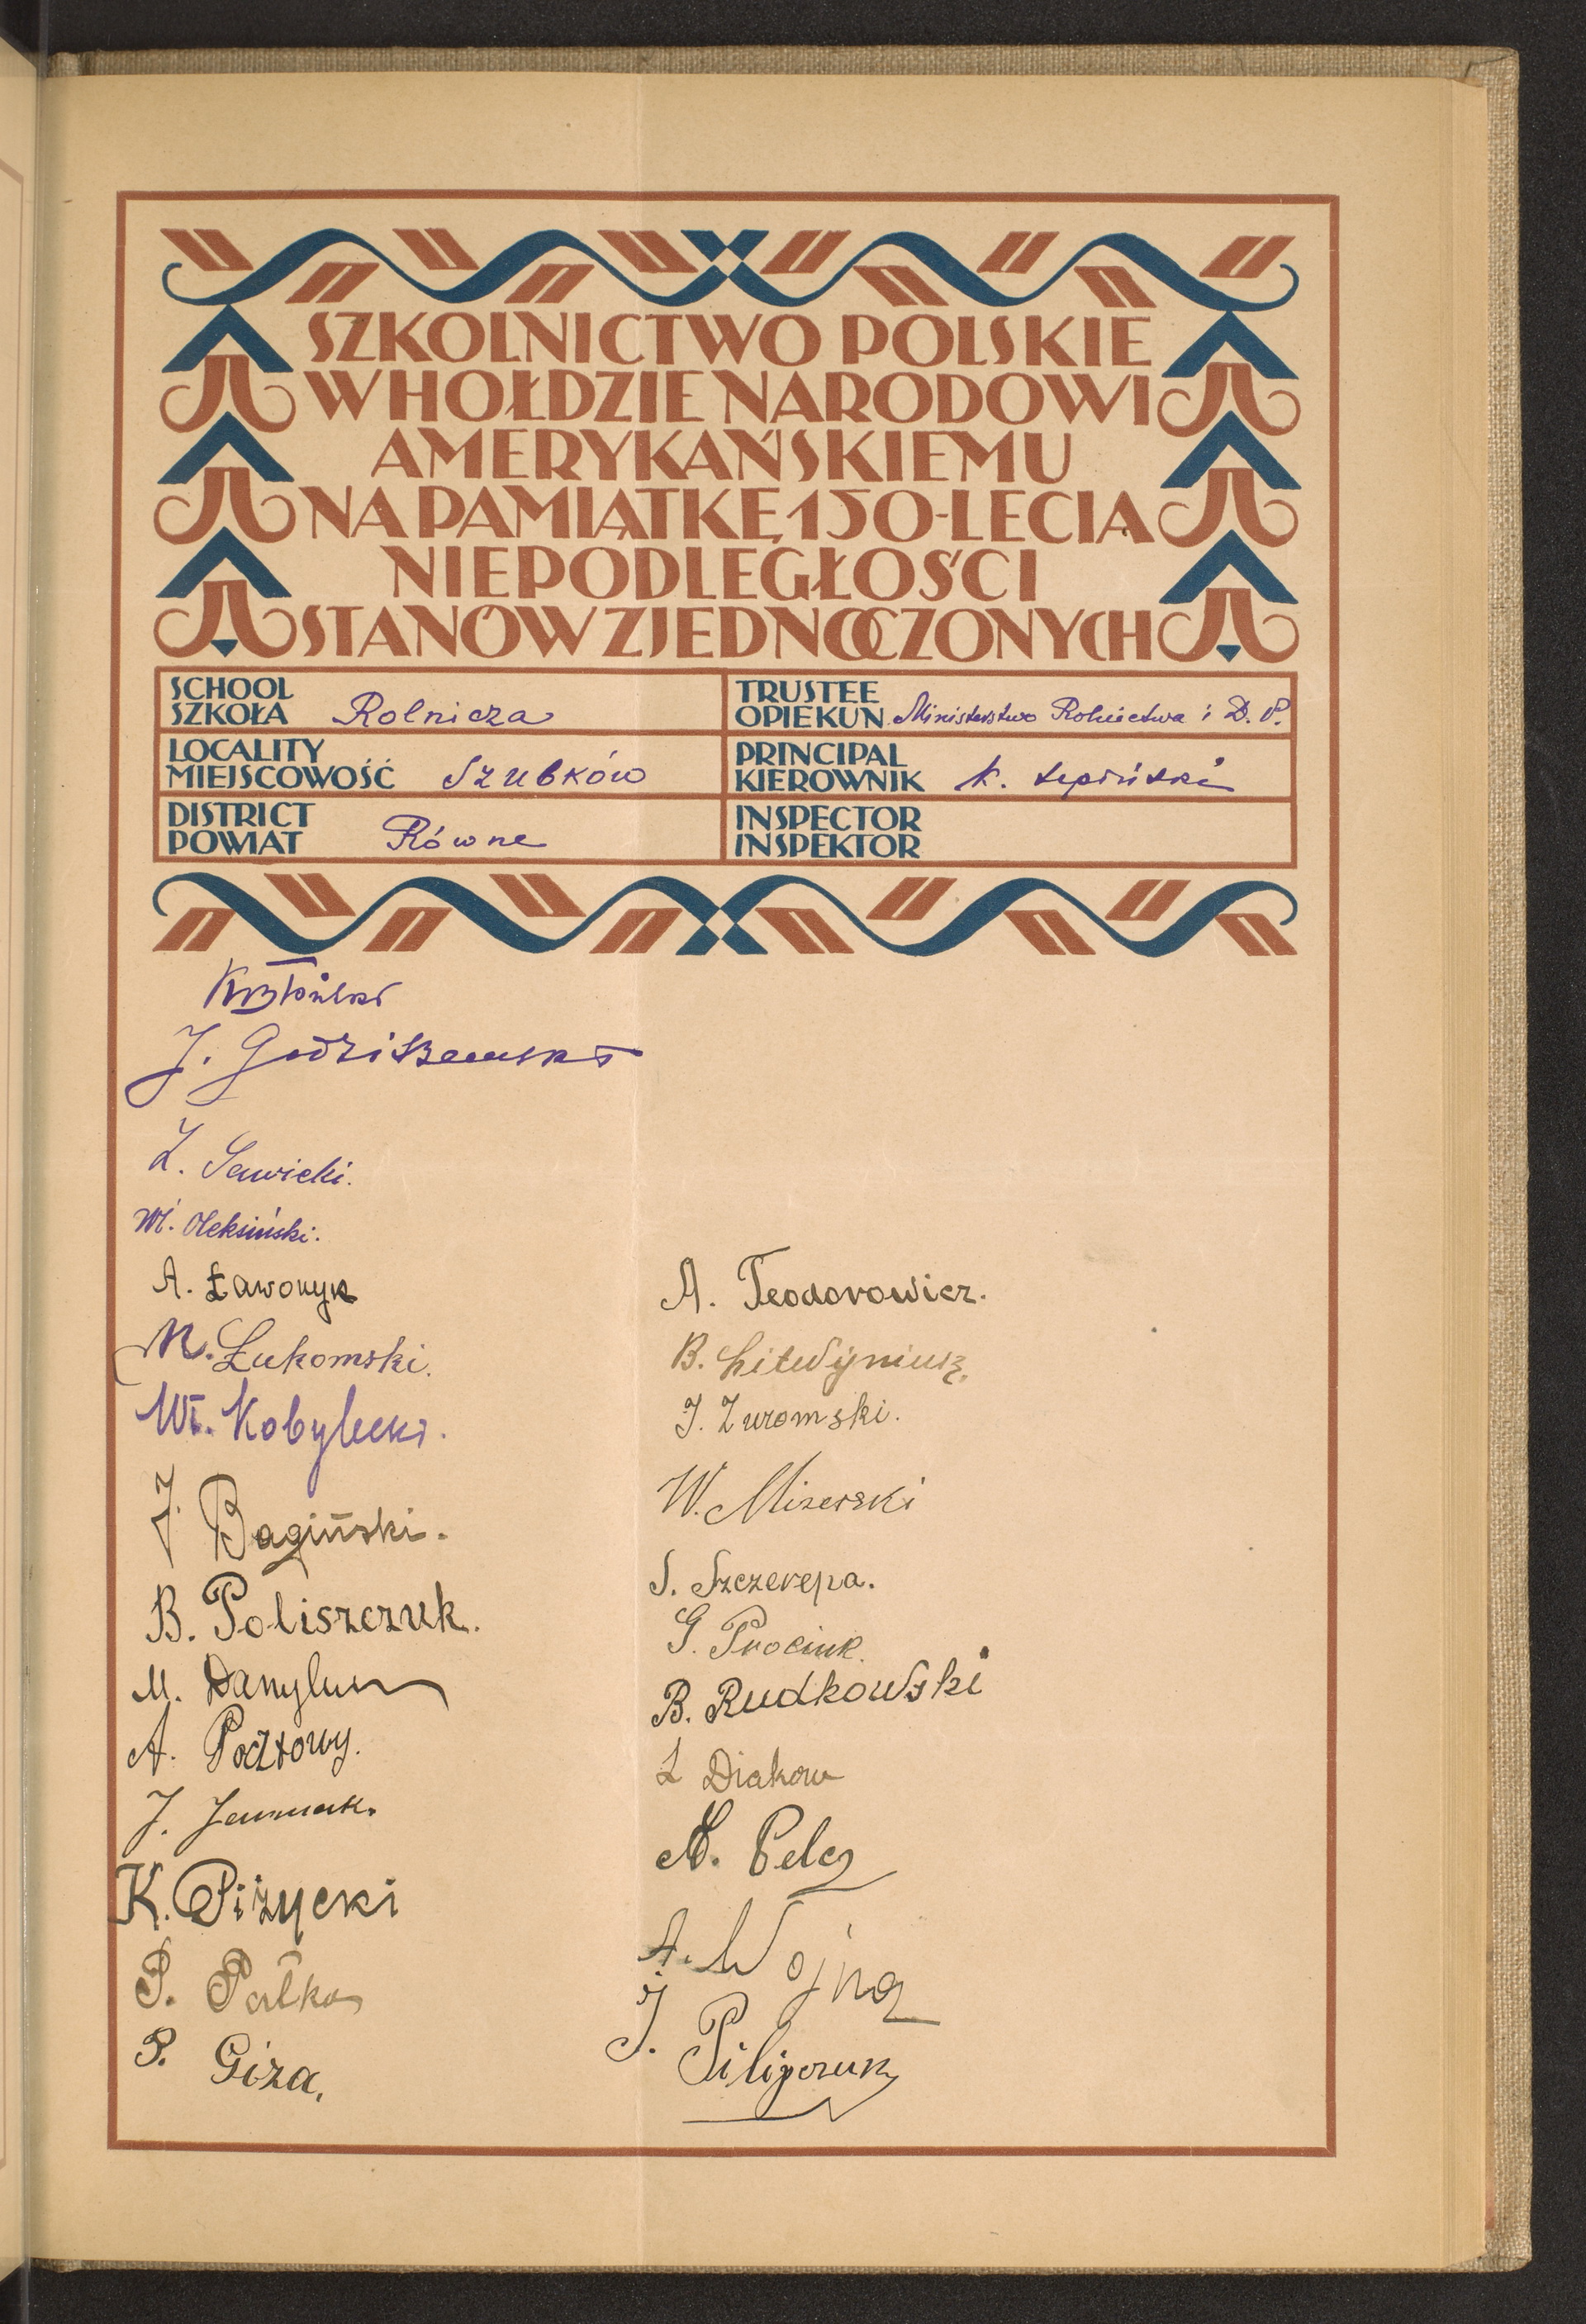 SZKOLNICTWO POLSKIE
W HOŁDZIE NARODOWI
AMERYKAŃSKIEMU
NA PAMIĄTKĘ 150-LECIA
NIEPODLEGŁOŚCI
STANÓW ZJEDNOCZONYCH
SCHOOL
SZKOŁA Rolnicza
TRUSTEE
OPIEKUN Ministerstwo Rolnictwa i D. P.
LOCALITY
MIEJSCOWOŚĆ Szubków
PRINCIPAL
KIEROWNIK K.
DISTRICT
POWIAT Równe
INSPECTOR
INSPEKTOR
J. Godziszewski
Z. Sawicki.
Wł. Oleksiński.
A. Ławonyk
M. Łukomski.
Wł. Kobylecki.
J. Bagiński.
B. Poliszczuk.
M.
A. Pocztowy.
J.
K. Piżycki
P. Pałka
P. Giza.
A. Teodorowicz.
B. Litwyniusz.
J. Żuromski.
W. Mizerski
S. Szczerepa.
G. Prociuk.
B. Rudkowski
L Diakow
A. Pelcz
A. Wojna
J. Piligoruk